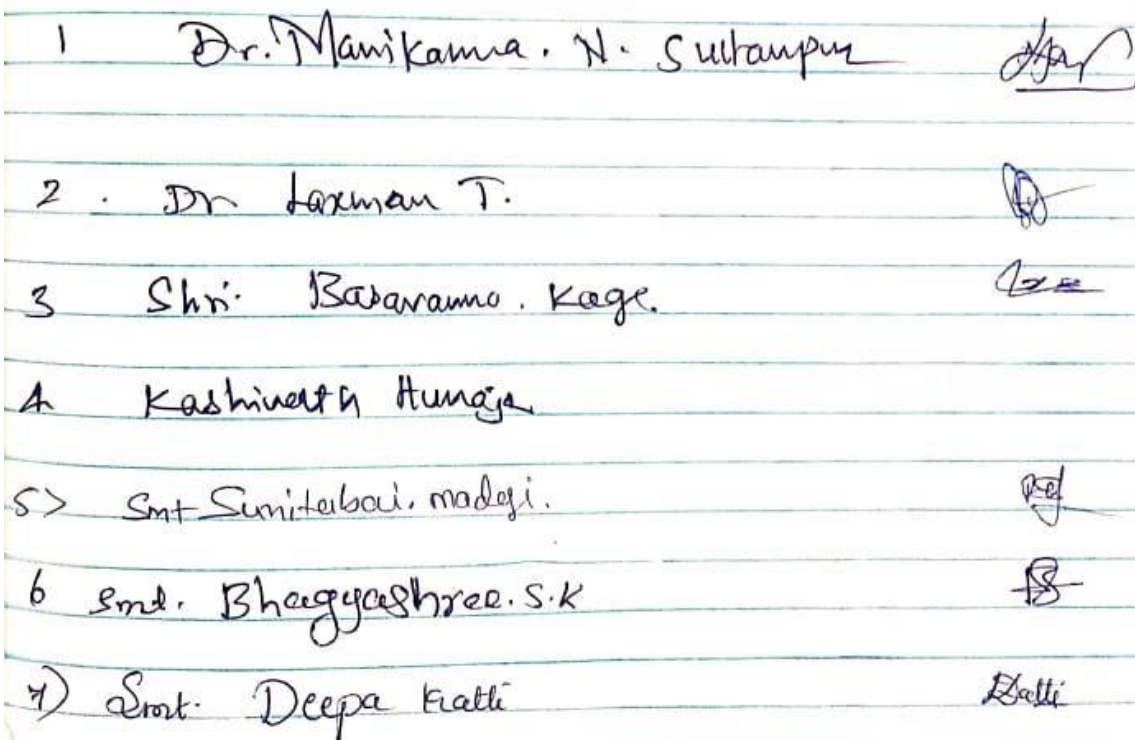 1 Dr. Manikamna. N. Sultanpur
2. Dr Laxman T.
3 Shri. Basavanno. Kage.
4 Kashinath
5> Smt Sunitabai. madegi.
6 Smt. Bhagyashree. S.K
7) Smt. Deepa Katti Datti